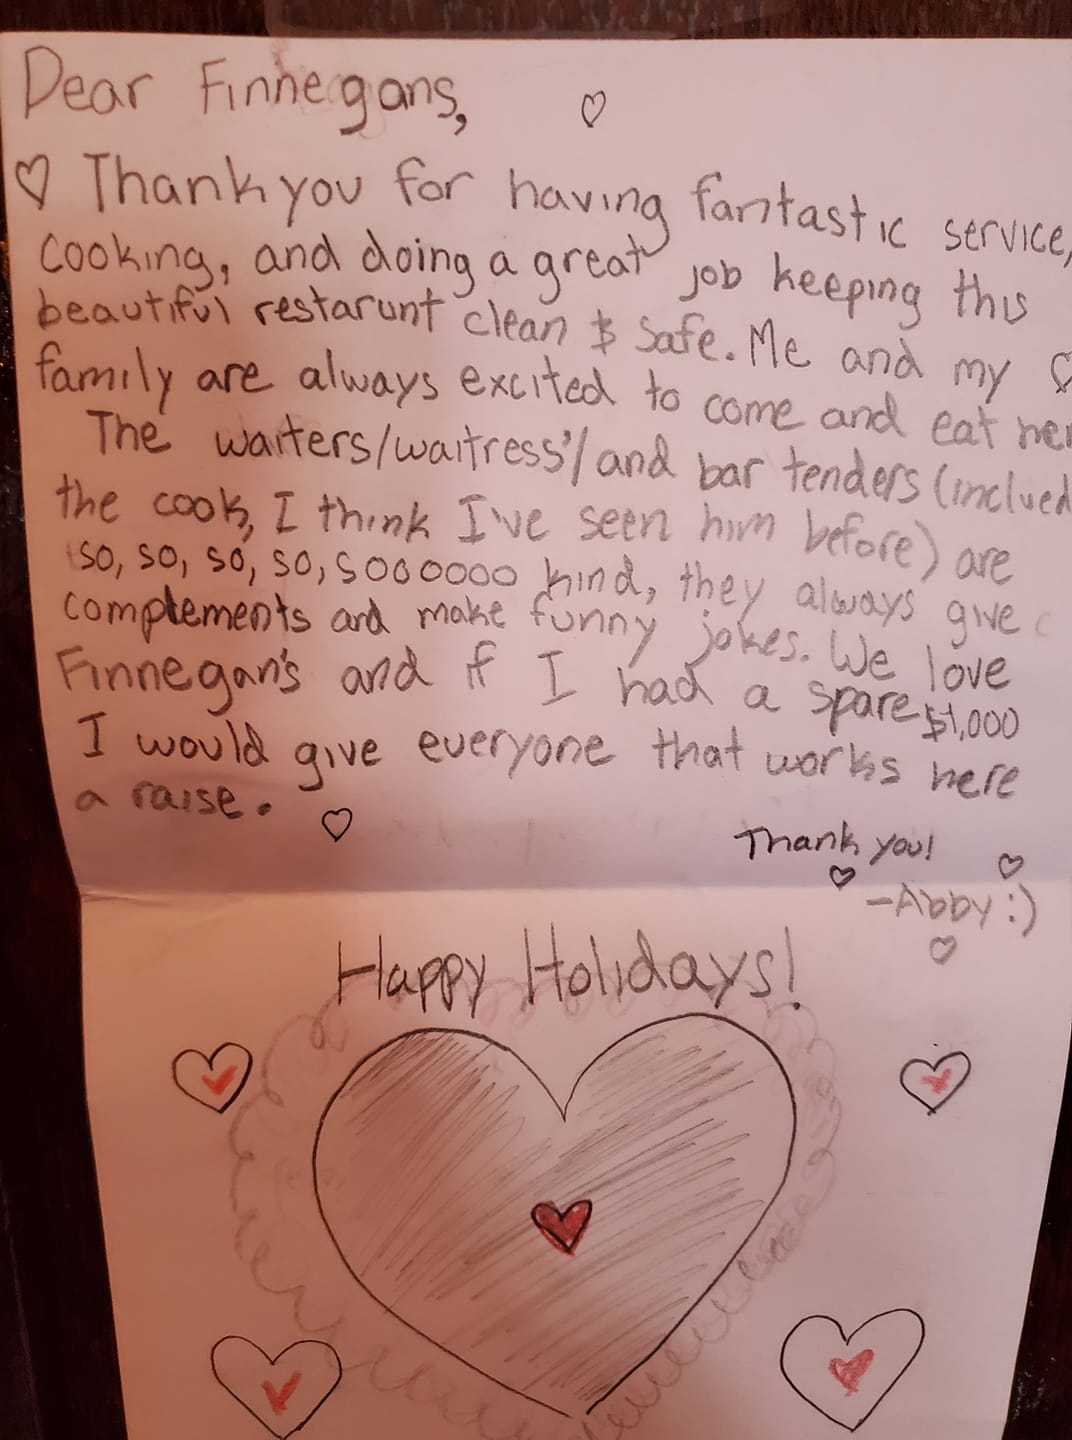 Dear Finnegans,
Thank you for having fantastic service,
cooking, and doing a great job keeping this
beautiful restarunt clean & safe. Me and my
family are always excited to come and eat her
The waiters/waitress'/and bar tenders (inclued
the cook, I think I've seen him before) are
so, so, so, so, sooooooo kind, they always give
complements and make funny jokes. We love
Finnegan's and if I had a spare $1,000
I would give everyone that works here
a raise.
Thank you!
-Abby :)
Happy Holidays!